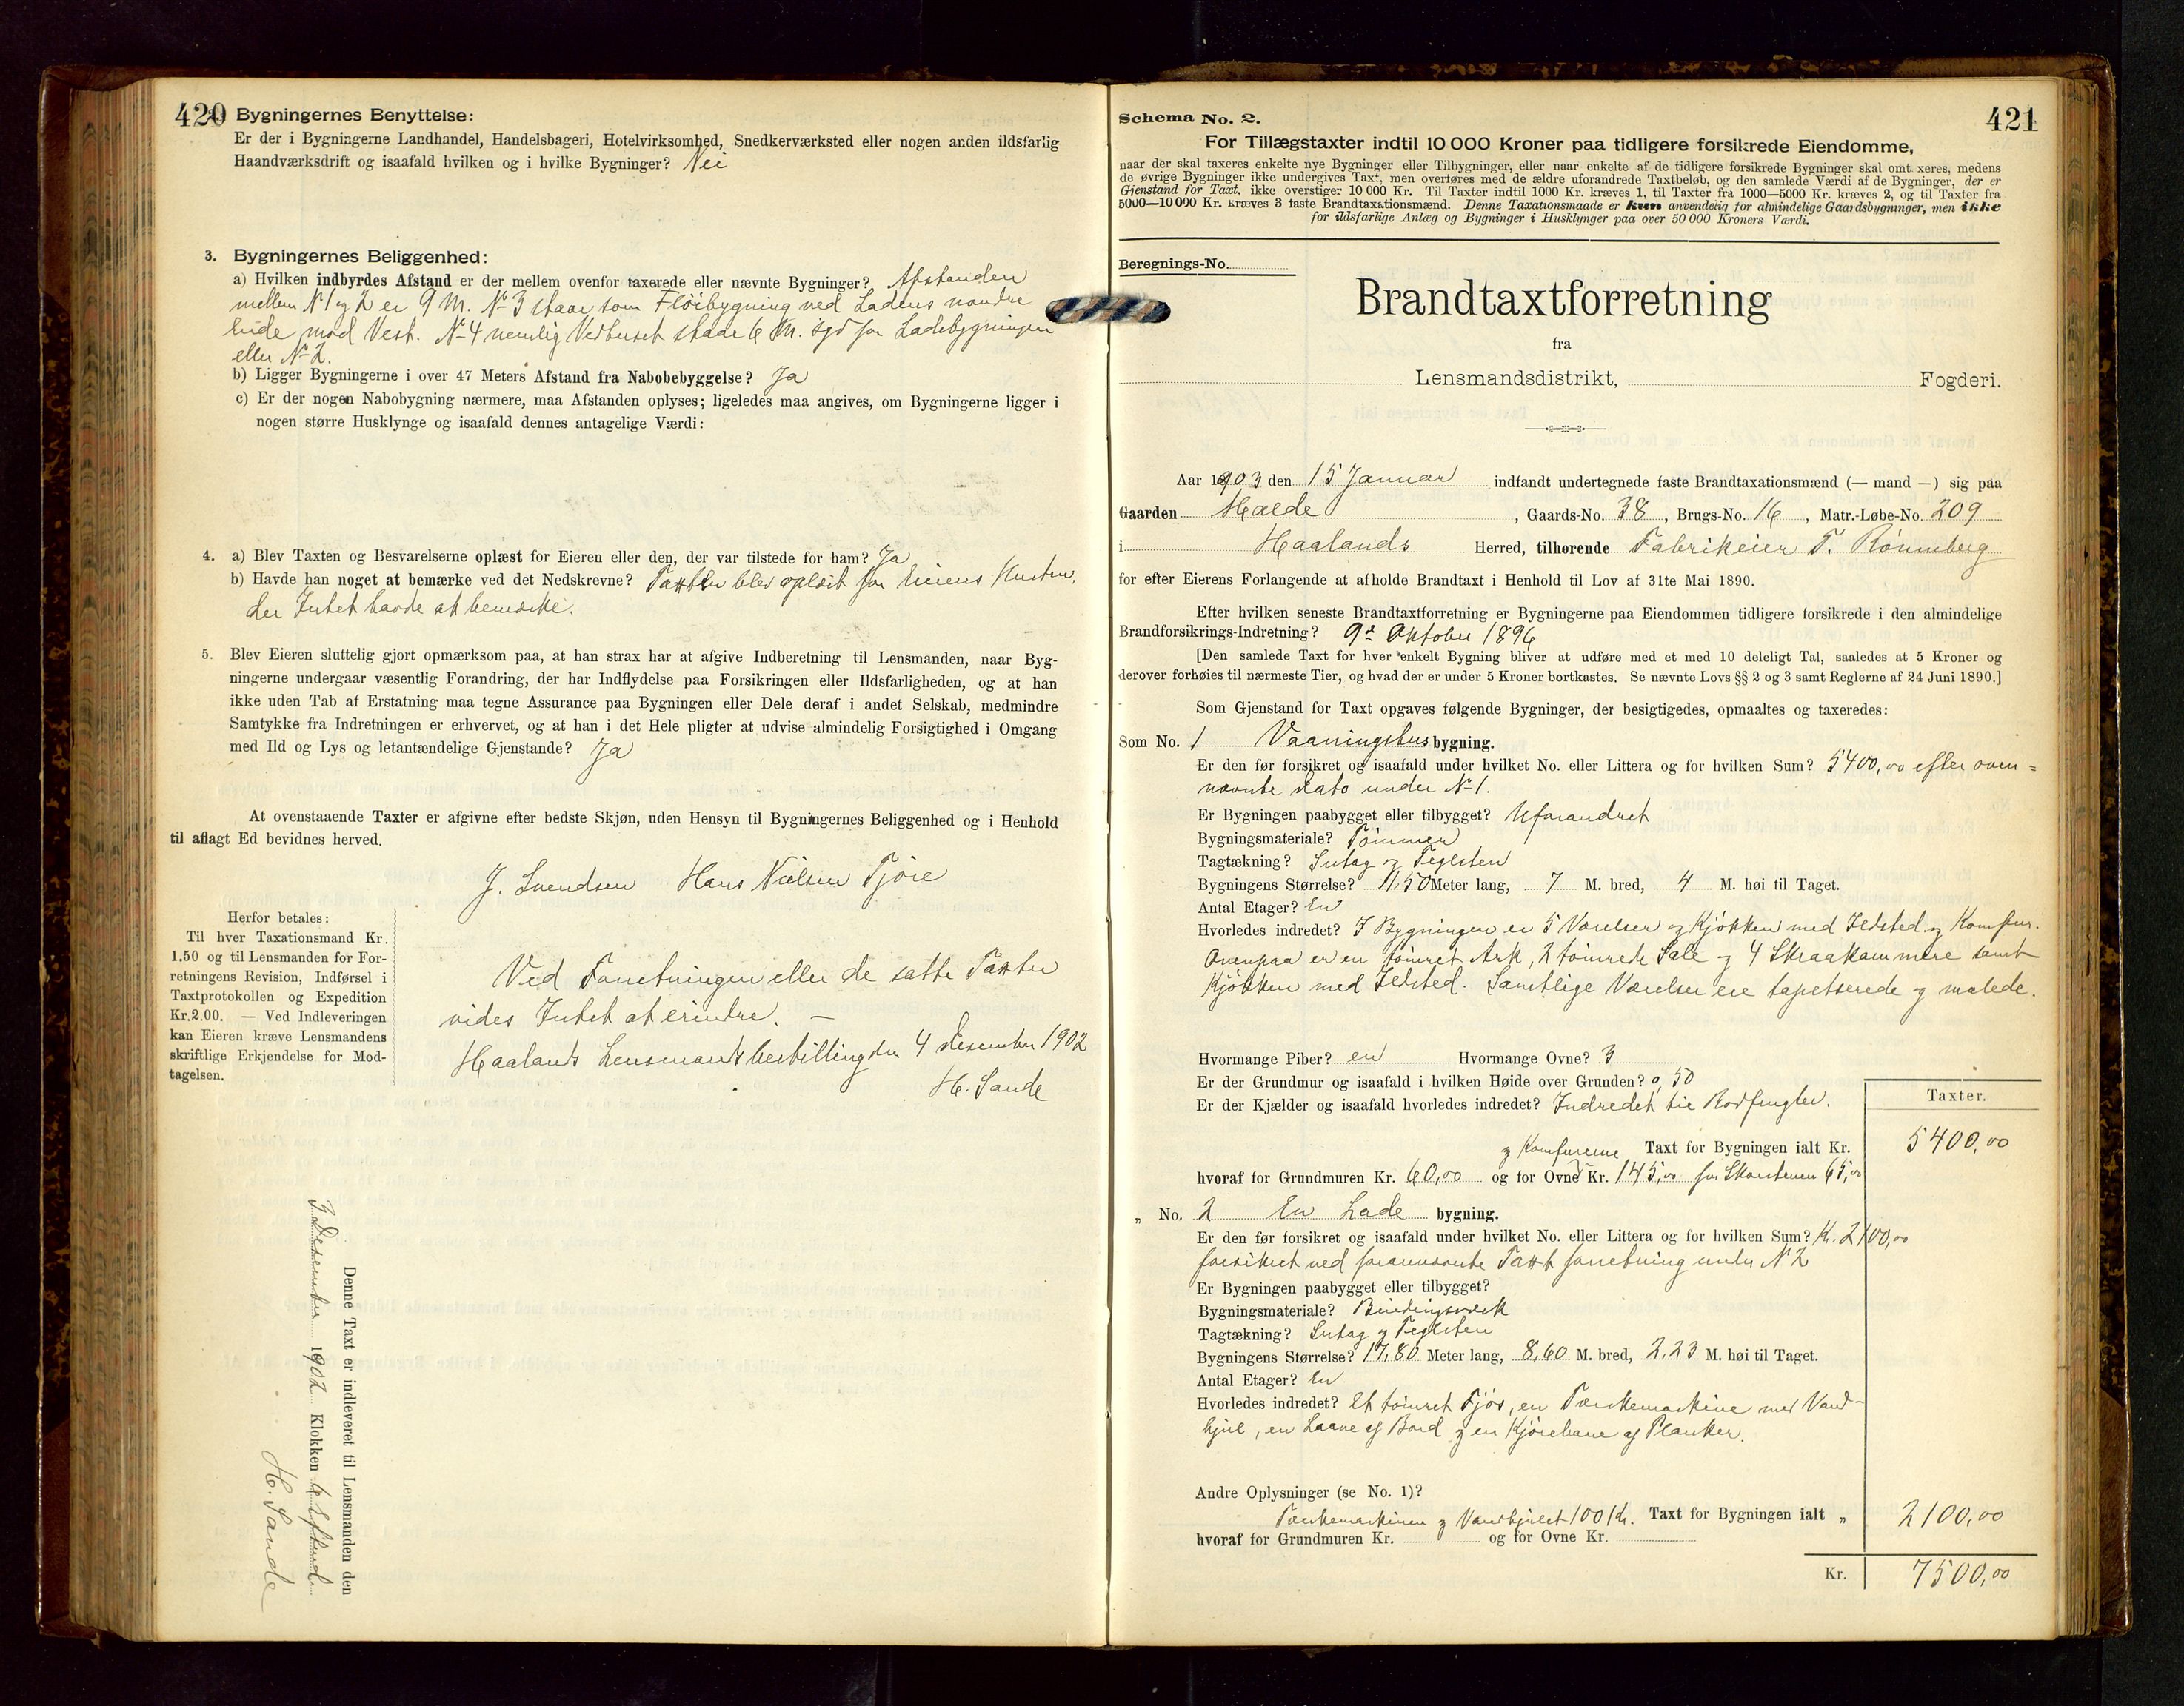 420
2. Bygningernes Benyttelse:
Er der i Bygningerne Landhandel, Handelsbageri, Hotelvirksomhed, Snedkerværksted eller nogen anden ildsfarlig
Haandværksdrift og isaafald hvilken og i hvilke Bygninger? Nei
3. Bygningernes Beliggenhed:
a) Hvilken indbyrdes Afstand er der mellem ovenfor taxerede eller nævnte Bygninger? Afstanden
mellem № 1 og 2 er 9 M. № 3 staar som Fløibygning ved Ladens nordre
Ende mod Vest. № 4 nemlig Vedhuset staar 6 M. syd for Ladebygningen
eller № 2.
b) Ligger Bygningerne i over 47 Meters Afstand fra Nabobebyggelse? Ja
c) Er der nogen Nabobygning nærmere, maa Afstanden oplyses; ligeledes maa angives, om Bygningerne ligger i
nogen større Husklynge og isaafald dennes antagelige Værdi:
4. a) Blev Taxten og Besvarelserne oplæst for Eieren eller den, der var tilstede for ham? Ja
b) Havde han noget at bemærke ved det Nedskrevne? Taxten blev oplæst for Eierens Hustru,
der Intet havde at bemærke.
5. Blev Eieren sluttelig gjort opmærksom paa, at han strax har at afgive Indberetning til Lensmanden, naar Byg-
ningerne undergaar væsentlig Forandring, der har Indflydelse paa Forsikringen eller Ildsfarligheden, og at han
ikke uden Tab af Erstatning maa tegne Assurance paa Bygningen eller Dele deraf i andet Selskab, medmindre
Samtykke fra Indretningen er erhvervet, og at han i det Hele pligter at udvise almindelig Forsigtighed i Omgang
med Ild og Lys og letantændelige Gjenstande? Ja
At ovenstaaende Taxter er afgivne efter bedste Skjøn, uden Hensyn til Bygningernes Beliggenhed og i Henhold
til aflagt Ed bevidnes herved.
J. Svendsen Hans Nielsen Tjøre
Herfor betales:
Til hver Taxationsmand Kr.
1.50 og til Lensmanden for For-
retningens Revision, Indførsel i
Taxtprotokollen og Expedition
Kr.2.00. — Ved Indleveringen
kan Eieren kræve Lensmandens
skriftlige Erkjendelse for Mod-
tagelsen.
Ved Forretningen eller de satte Taxter
vides Intet at erindre. —
Haalands Lensmandsbestilling den 4 Desember 1902
H. Sande
Denne Taxt er indleveret til Lensmanden den
3 Desember 1902 Klokken 6 Efterd.
H. Sande
421
Schema No. 2.
For Tillægstaxter indtil 10 000 Kroner paa tidligere forsikrede Eiendomme,
naar der skal taxeres enkelte nye Bygninger eller Tilbygninger, eller naar enkelte af de tidligere forsikrede Bygninger skal omt xeres, medens
de øvrige Bygninger ikke undergives Taxt, men overføres med de ældre uforandrede Taxtbeløb, og den samlede Værdi af de Bygninger, der er
Gjenstand for Taxt, ikke overstiger 10 000 Kr. Til Taxter indtil 1000 Kr. kræves 1, til Taxter fra 1000—5000 Kr. kræves 2, og til Taxter fra
5000—10 000 Kr. kræves 3 faste Brandtaxationsmænd. Denne Taxationsmaade er kun anvendelig for almindelige Gaardsbygninger, men ikke
for ildsfarlige Anlæg og Bygninger i Husklynger paa over 50 000 Kroners Værdi.
Beregnings-No.
Brandtaxtforretning
fra
Lensmandsdistrikt, Fogderi.
Aar 1903 den 15 Januar indfandt undertegnede faste Brandtaxationsmænd (— mand —) sig paa
Gaarden Hælde, Gaards-No. 38, Brugs-No. 16, Matr.-Løbe-No. 209
i Haalands Herred, tilhørende Fabrikeier T. Rønneberg
for efter Eierens Forlangende at afholde Brandtaxt i Henhold til Lov af 31te Mai 1890.
Efter hvilken seneste Brandtaxtforretning er Bygningerne paa Eiendommen tidligere forsikrede i den almindelige
Brandforsikrings-Indretning? 9de Oktober 1896
[Den samlede Taxt for hver enkelt Bygning bliver at udføre med et med 10 deleligt Tal, saaledes at 5 Kroner og
derover forhøies til nærmeste Tier, og hvad der er under 5 Kroner bortkastes. Se nævnte Lovs §§ 2 og 3 samt Reglerne af 24 Juni 1890.]
Som Gjenstand for Taxt opgaves følgende Bygninger, der besigtigedes, opmaaltes og taxeredes:
Som No. 1 Vaaningshus bygning.
Er den før forsikret og isaafald under hvilket No. eller Littera og for hvilken Sum? 5400,00 efter oven=
nævnte Dato under № 1.
Er Bygningen paabygget eller tilbygget? Uforandret
Bygningsmateriale? Tømmer
Tagtækning? Sutag og Teglsten
Bygningens Størrelse? 11,50 Meter lang, 7 M. bred, 4 M. høi til Taget.
Antal Etager? En
Hvorledes indredet? I Bygningen er 5 Værelser og Kjøkken med Ildsted og Komfur.
Ovenpaa er en tømret Ark, 2 tømrede Sale og 4 Skraakammere samt
Kjøkken med Ildsted. Samtlige Værelser ere tapetserede og malede.
Hvormange Piber? en Hvormange Ovne? 3
Er der Grundmur og isaafald i hvilken Høide over Grunden? 0,50
Er der Kjælder og isaafald hvorledes indredet? Indredet til Rodfrugter.
Taxter.
og Komfurerne Taxt for Bygningen ialt Kr. 5400,00
hvoraf for Grundmuren Kr. 60,00 og for Ovne Kr. 145,00 for Skorstenen 65,00
„ No. 2 En Lade bygning.
Er den før forsikret og isaafald under hvilket No. eller Littera og for hvilken Sum? Kr. 2100,00
forsikret ved forannævnte Taxt forretning under № 2
Er Bygningen paabygget eller tilbygget?
Bygningsmateriale? Bindingsværk
Tagtækning? Sutag og Teglsten
Bygningens Størrelse? 17,80 Meter lang, 8,60 M. bred, 2,23 M. høi til Taget.
Antal Etager? En
Hvorledes indredet? Et tømret Fjøs, en Tærskemaskine med Vand-
hjul, en Laave af Bord og en Kjørebane af Planker.
Andre Oplysninger (se No. 1)?
Tærskemaskinen og Vandhjulet 100 Kr. Taxt for Bygningen ialt „ 2100,00
hvoraf for Grundmuren Kr. og for Ovne Kr.
Kr. 7500,00